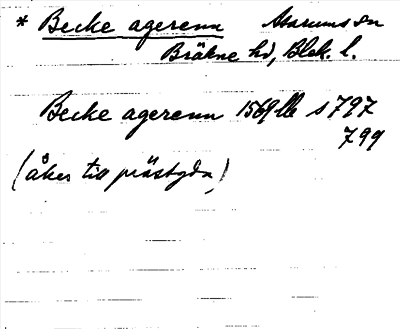 * Becke agerenn Asarums sn
Bräkne hd, Blek. l.
Becke agerenn 1569 lb s 797
799
(åker till prästgdn)